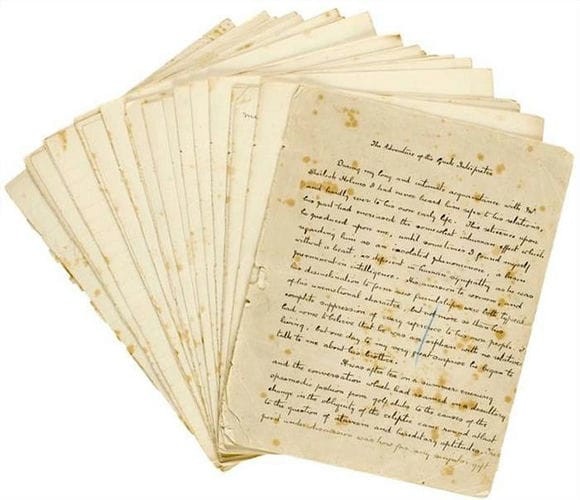 me
The Adventure of the Greek Interpreter
During my long and intimate acquaintance with Mr
Sherlock Holmes I had never heard him refer to his relations,
and hardly ever to his own early life. This reticence upon
his part had increased the somewhat inhuman effect which
he produced upon me, until sometimes I found myself
regarding him as an isolated phenomenon, a brain
without a heart, as deficient in human sympathy as he was
preeminent in intelligence. His aversion to women and
his disinclination to form new friendships were both typical
of his unemotional character, but not more so than his
complete suppression of every reference to his own people. I
had come to believe that he was an orphan with no relatives
living, but one day to my very great surprise he began to
talk to me about his brother.
It was after tea on a summer evening
and the conversation which had roamed in a desultory
spasmodic fashion from golf clubs to the causes of the
change in the obliquity of the ecliptic came round at last
to the question of atavism and hereditary aptitudes. The
point under discussion was how far any singular gift